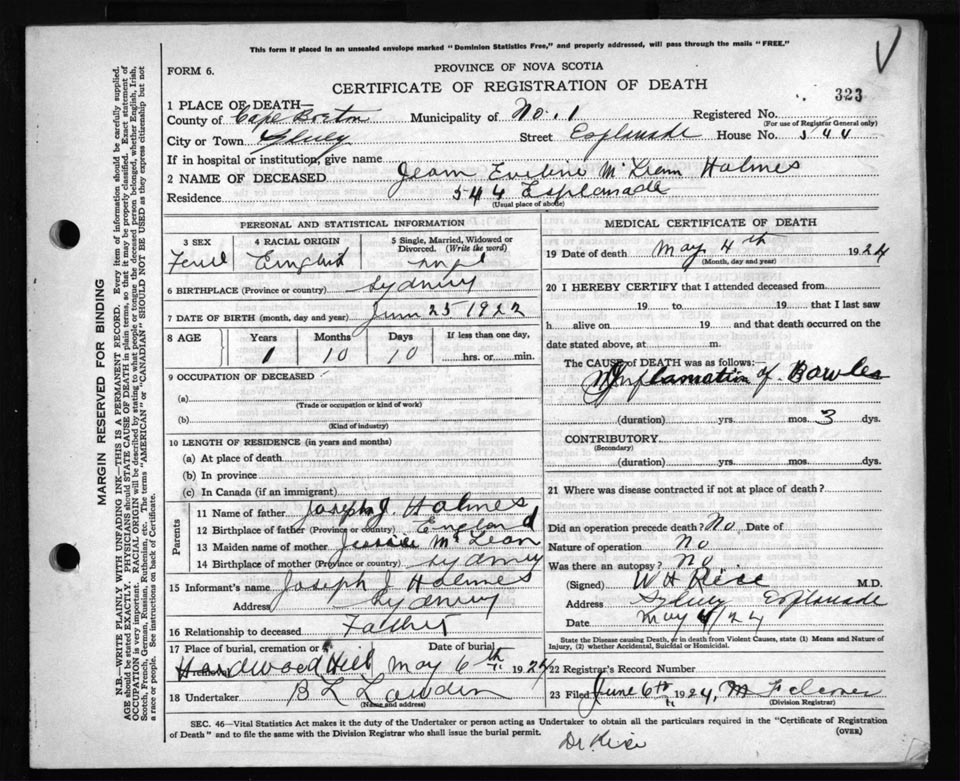 This form if placed in an unsealed envelope marked "Dominion Statistics Free," and properly addressed, will pass through the mails "FREE."
FORM 6.
PROVINCE OF NOVA SCOTIA
CERTIFICATE OF REGISTRATION OF DEATH
323
1 PLACE OF DEATH—
County of Cape Breton Municipality of No. 1 Registered No.
(For use of Registrar General only)
City or Town Sydney Street Esplanade House No. 544
If in hospital or institution, give name
2 NAME OF DECEASED Jean Eveline McLean Holmes
Residence 544 Esplanade
(Usual place of abode)
PERSONAL AND STATISTICAL INFORMATION
3 SEX 4 RACIAL ORIGIN 5 Single, Married, Widowed or Divorced. (Write the word)
English
6 BIRTHPLACE (Province or country) Sydney
7 DATE OF BIRTH (month, day and year) June 25 1922
8 AGE Years Months Days If less than one day,
1 10 10 hrs. or min.
9 OCCUPATION OF DECEASED
(a)
(Trade or occupation or kind of work)
(b)
(Kind of industry)
10 LENGTH OF RESIDENCE (in years and months)
(a) At place of death
(b) In province
(c) In Canada (if an immigrant)
Parents
11 Name of father Joseph J. Holmes
12 Birthplace of father (Province or country) England
13 Maiden name of mother Jessie McLean
14 Birthplace of mother (Province or country) Sydney
15 Informant's name Joseph J Holmes
Address Sydney
16 Relationship to deceased Father
17 Place of burial, cremation or Date of burial
Hardwood Hill May 6th 1924
18 Undertaker B L
(Name and address)
MEDICAL CERTIFICATE OF DEATH
19 Date of death May 4th 1924
(Month, day and year)
20 I HEREBY CERTIFY that I attended deceased from
19 to 19 that I last saw
h alive on 19 and that death occurred on the
date stated above, at m.
The CAUSE of DEATH was as follows:
Inflamation of Bowles
(duration) yrs. mos. 3 dys.
CONTRIBUTORY
(Secondary)
(duration) yrs. mos. dys.
21 Where was disease contracted if not at place of death?
Did an operation precede death? No Date of
Nature of operation No
Was there an autopsy? No
(Signed) W H Rice M.D.
Address Sydney Esplanade
Date May 4/24
State the Disease causing Death, or in death from Violent Causes, state (1) Means and Nature of
Injury, (2) whether Accidental, Suicidal or Homicidal.
22 Registrar's Record Number
23 Filed June 6th 1924, M
(Division Registrar)
SEC. 46—Vital Statistics Act makes it the duty of the Undertaker or person acting as Undertaker to obtain all the particulars required in the "Certificate of Registration
of Death" and to file the same with the Division Registrar who shall issue the burial permit.
(OVER)
Dr Rice
MARGIN RESERVED FOR BINDING
N.B.—WRITE PLAINLY, WITH UNFADING INK—THIS IS A PERMANENT RECORD. Every item of information should be carefully supplied.
AGE should be stated EXACTLY. PHYSICIANS should STATE CAUSE OF DEATH in plain terms, so that it may be properly classified. Exact statement of
OCCUPATION is very important. RACIAL ORIGIN will be described by stating to what people or tongue the deceased person belonged, whether English, Irish,
Scotch, French, German, Russian, Ruthenian, etc. The terms "AMERICAN" or "CANADIAN" SHOULD NOT BE USED as they express citizenship but not
a race or people. See instructions on back of Certificate.